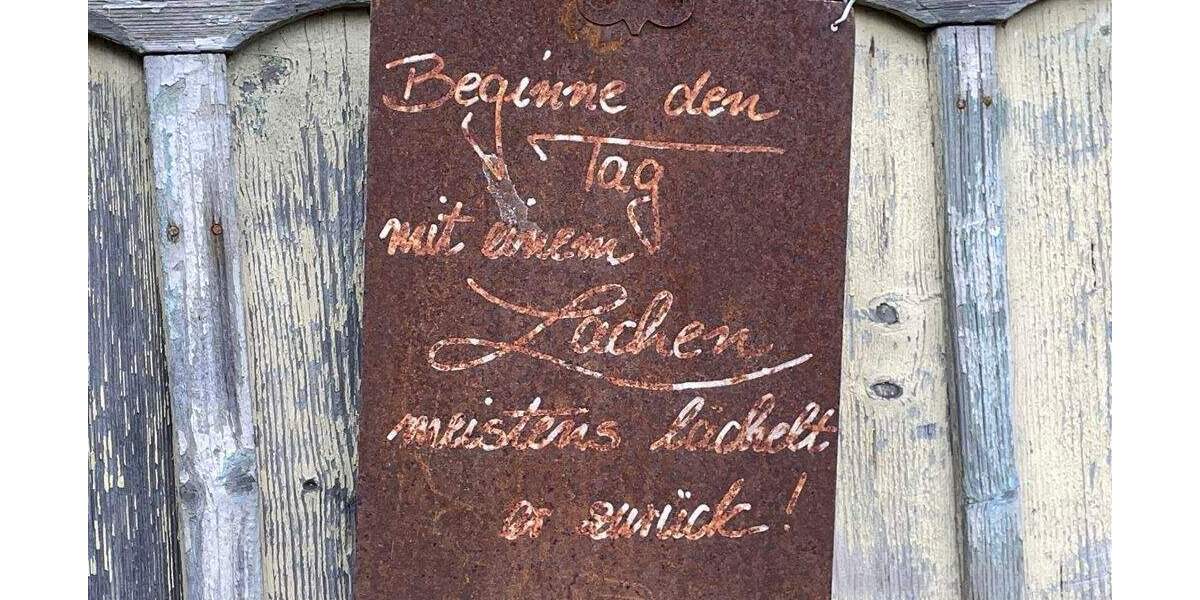 Beginne den
Tag
mit einem
Lachen
meistens lächelt
er zurück!